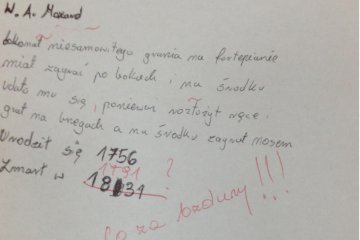 W. A. Mozard
dokonał niesamowitego grania na fortepianie
miał zagrać po bokach i na środku
Udało mu się, ponieważ rozłożył ręce i
grał na brzegach a na środku zagrał nosem
Urodził się 1756
1791 ?
Zmarł w 1831
Co za bzdury!!!